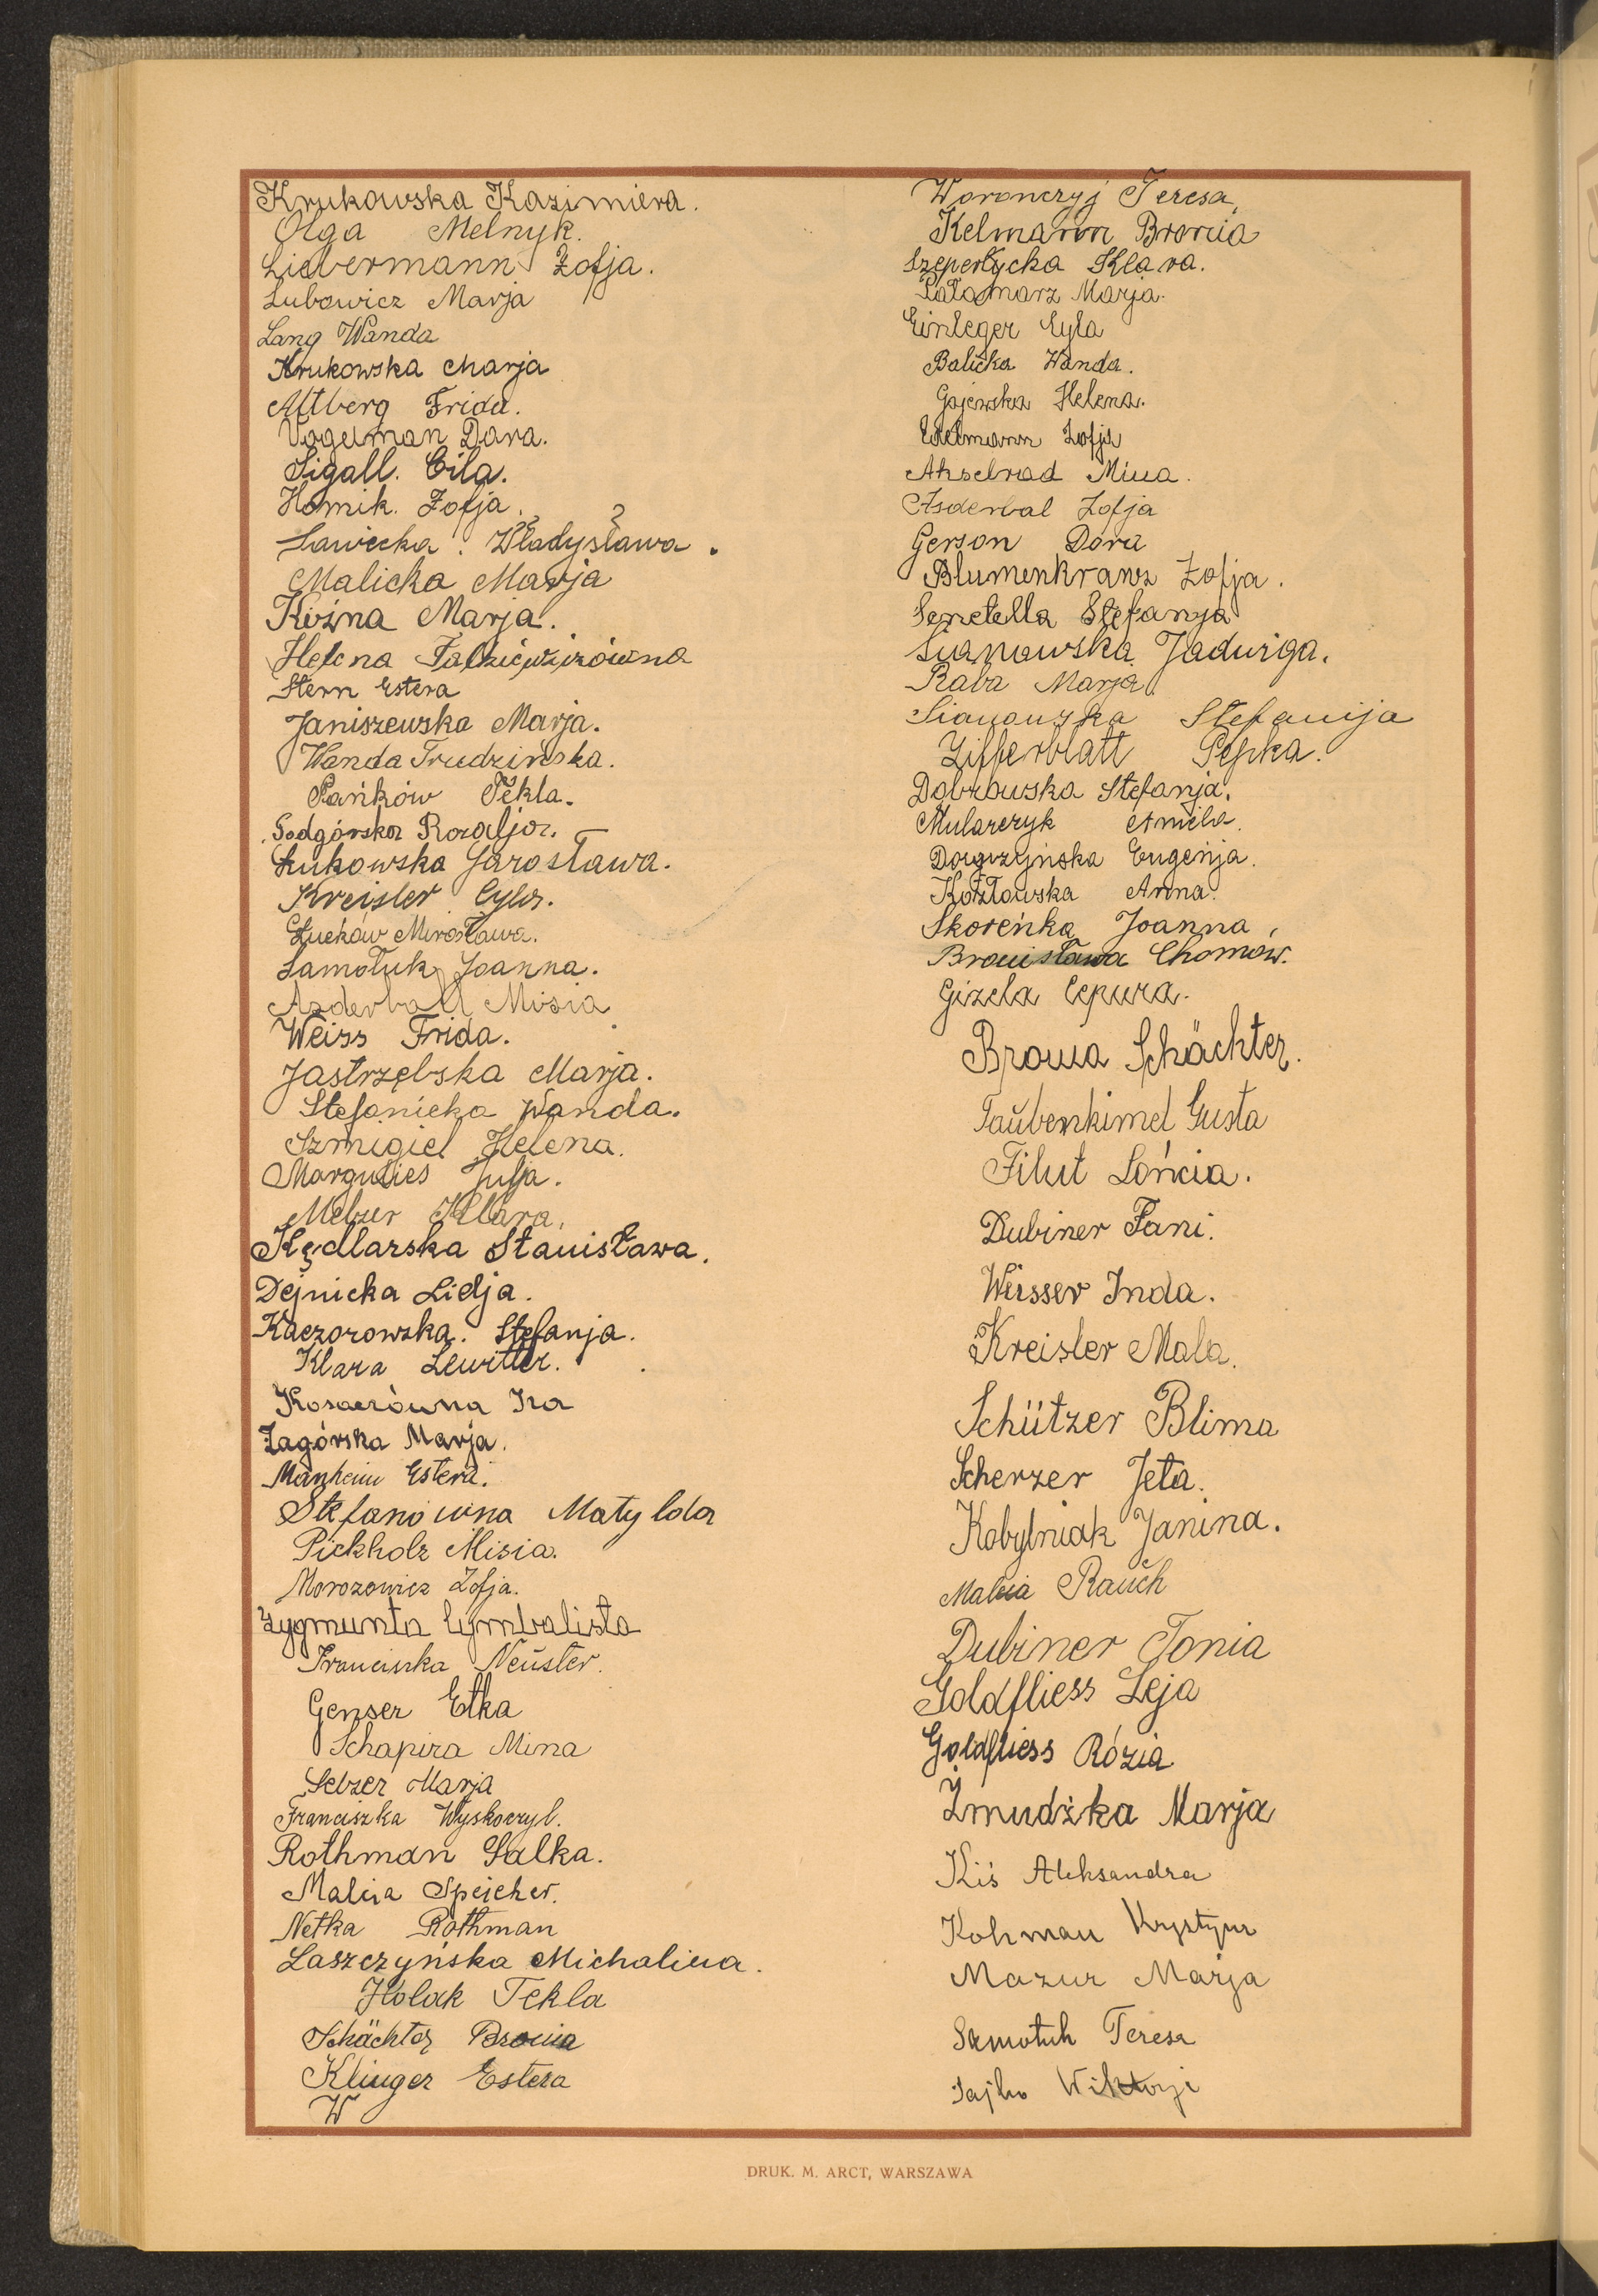 Krukowska Kazimiera.
Olga Melnyk.
Liebermann Zofja.
Lubowicz Marja
Lang Wanda
Krukowska Marja
Altberg Frida.
Vogelman Dora.
Sigall. Cila.
Homik. Zofja.
Sawicka. Władysława.
Malicka Marja
Koźna Marja.
Helena
Stern Estera
Janiszewska Marja.
Wanda Trudzińska.
Pańków Tekla.
Podgórska Rozalja.
Łukowska Jarosława.
Kreisler Cyla.
Łucków Mirosława.
Samotuk Joanna.
Asderball Misia
Weiss Frida.
Jastrzębska Marja.
Stefanicka Wanda.
Szmigiel Helena.
Margulies Julja.
Melzer Klara.
Kędlarska Stanisława.
Dejnicka Lidja.
Kaczorowska. Stefanja.
Klara Lewitter.
Kosaerówna Ira
Zagórska Marja.
Manheim Estera.
Stefanówna Matylda
Pickholz Misia.
Morozowicz Zofja.
Zygmunta Cymbalista
Franciszka Neuster.
Genser Etka
Schapira Mina
Selzer Marja
Franciszka Wyskoczyl.
Rothman Salka.
Malcia Speicher.
Netka Rothman
Laszczyńska Michalina.
Holak Tekla
Schächter Bronia
Klinger Estera
W
Woronczyj Teresa,
Kelmann Broncia
Szepertycka Klara.
Pałamarz Marja.
Einleger Cyla
Balicka Wanda.
Gajewska Helena.
Edelmann Zofja
Akselrad Mina.
Asderbal Zofja
Gerson Dora
Blumenkranz Zofja.
Senetella Stefanja
Sianowska Jadwiga.
Raba Marja
Sianowska Stefanija
Zifferblatt Pepka.
Dobrowska Stefanja.
Mularczyk Aniela.
Eugenja.
Kozłowska Anna.
Skoreńka Joanna,
Bronisława Chomów.
Gizela Cepura.
Bronia Schächter.
Taubenkimel Gusta
Filut Lońcia.
Dubiner Fani.
Weisser Inda.
Kreisler Mala.
Schützer Blima
Scherzer Jeta.
Kobylniak Janina.
Malcia Rauch
Dubiner Tonia
Goldfliess Leja
Goldfliess Rózia
Żmudzka Marja
Kiś Aleksandra
Kohman Krystyna
Mazur Marja
Samotuk Teresa
DRUK. M. ARCT, WARSZAWA